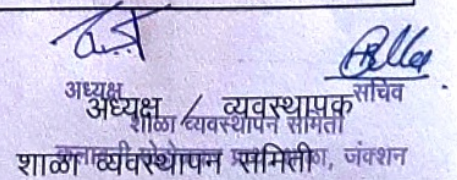 अध्यक्ष सचिव
अध्यक्ष / व्यवस्थापक
शाळा व्यवस्थापन समिती
शाळा व्यवस्थापन समिती
जंक्शन